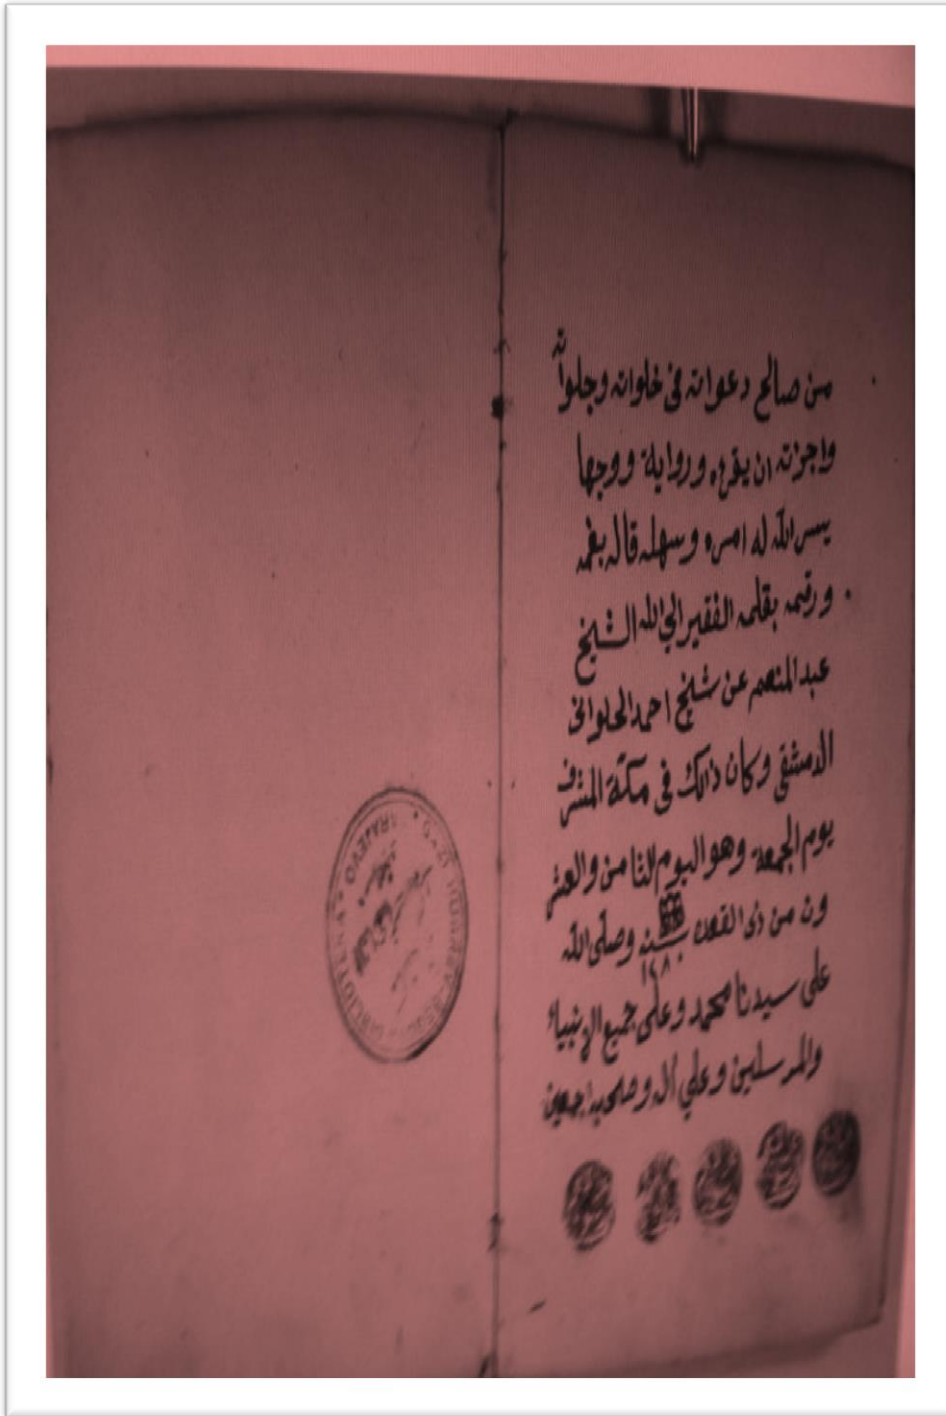 من صالح دعواته فى خلواته وجلواته
واجزته ان يقرء ورواية ووجها
يسر الله له امره وسهله قاله بفمه
ورقمه بقلمه الفقير الى الله الشيخ
عبد المنعم عن شيخ احمد الحلوانى
الدمشقى وكان ذالك فى مكة المشرف
يوم الجمعة وهو اليوم الثامن والعشر
ون من ذى القعده سنه ١٢٨٠ وصلى الله
على سيدنا محمد وعلى جميع الانبياء
والمرسلين وعلى آله وصحبه اجمعين
SARAJEVO